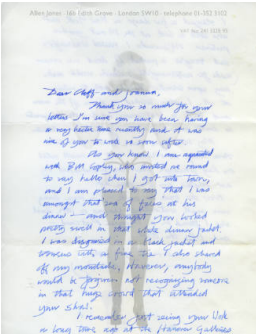 Allen Jones · 16b Edith Grove · London SW10 · telephone 01-352 5102
Dear Cliff and Joanna,
Thank you so much for your
letter. I'm sure you have been having
a very hectic time recently and it was
nice of you to write so soon after.
As you know I am acquainted
with Bill Copley, who invited me round
to say hello when I got into town,
and I am pleased to say that I was
amongst that sea of faces at his
dinner — and thought you looked
pretty swell in that white dinner jacket.
I was disguised in a black jacket and
I also shaved
off my moustache. However, anybody
would be forgiven not recognizing someone
in that huge crowd that attended
your show.
I remember first seeing your work
a long time ago at the Hanover Galleries